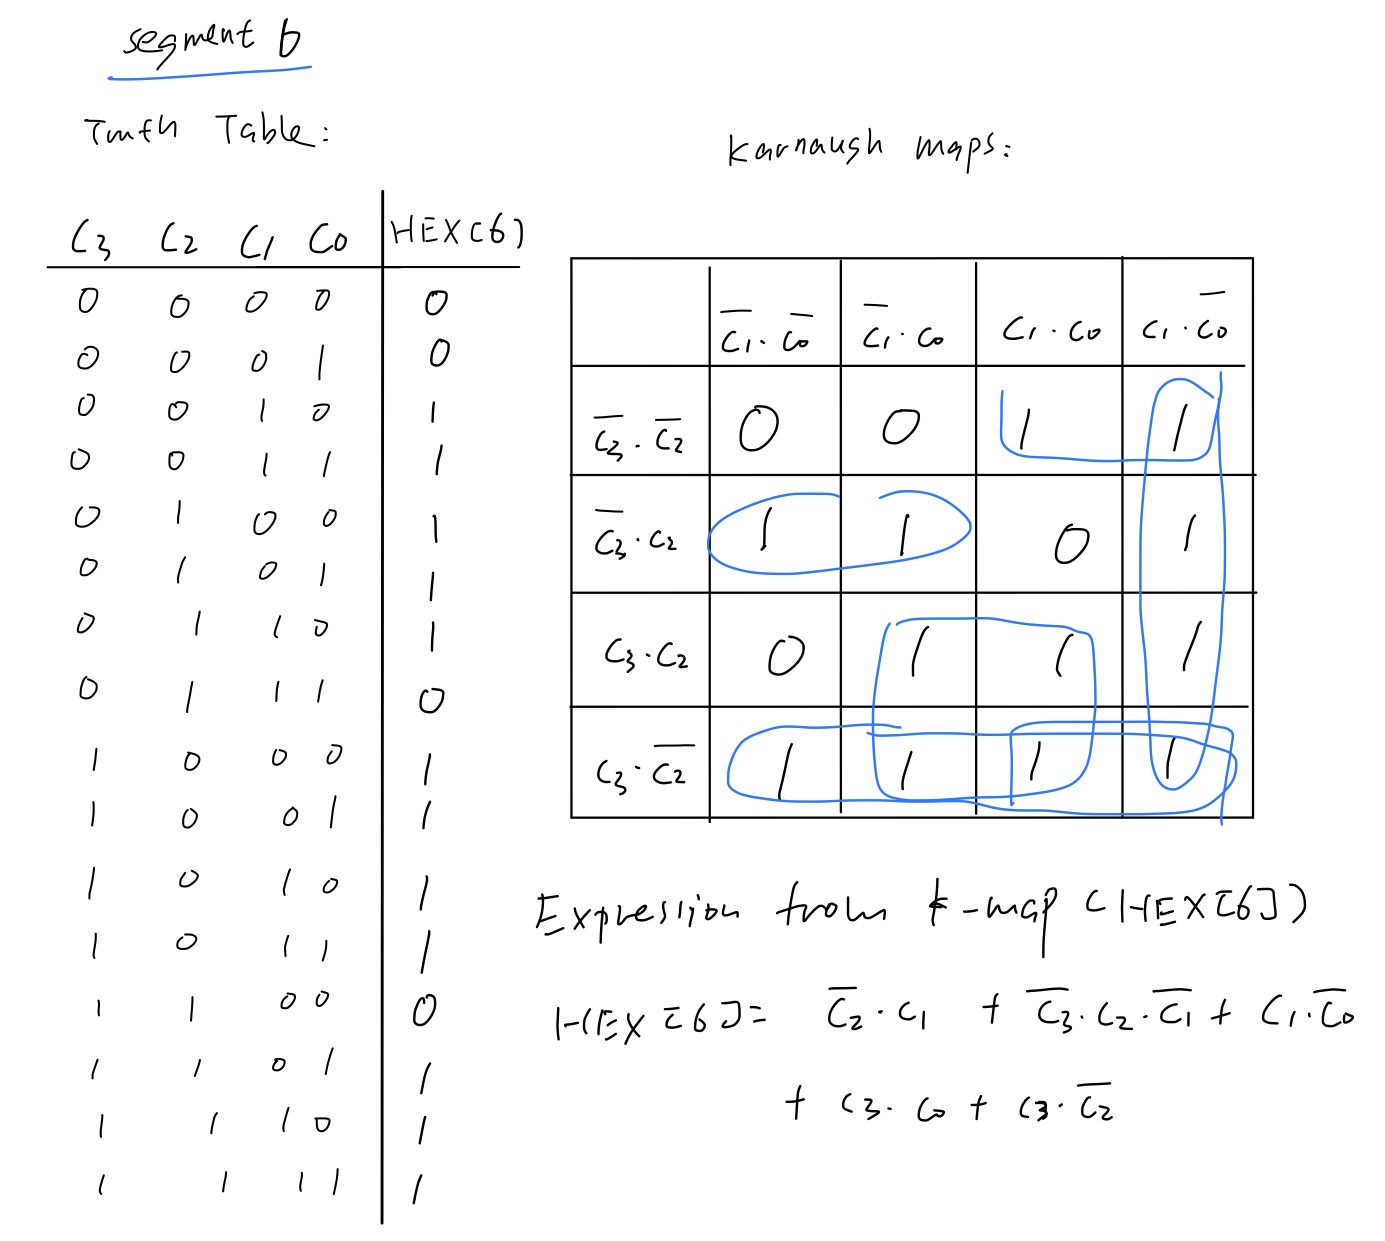 segment 6
Truth Table:
Karnaugh maps:
C3 C2 C1 C0 HEX[6]
0 0 0 0 0
0 0 0 1 0
0 0 1 0 1
0 0 1 1 1
0 1 0 0 1
0 1 0 1 1
0 1 1 0 1
0 1 1 1 0
1 0 0 0 1
1 0 0 1 1
1 0 1 0 1
1 0 1 1 1
1 1 0 0 0
1 1 0 1 1
1 1 1 0 1
1 1 1 1 1
C̅1·C̅0 C̅1·C0 C1·C0 C1·C̅0
C̅3·C̅2 0 0 1 1
C̅3·C2 1 1 0 1
C3·C2 0 1 1 1
C3·C̅2 1 1 1 1
Expression from k-map (HEX[6])
HEX[6]= C̅2·C1 + C̅3·C2·C̅1 + C1·C̅0
+ C3·C0 + C3·C̅2